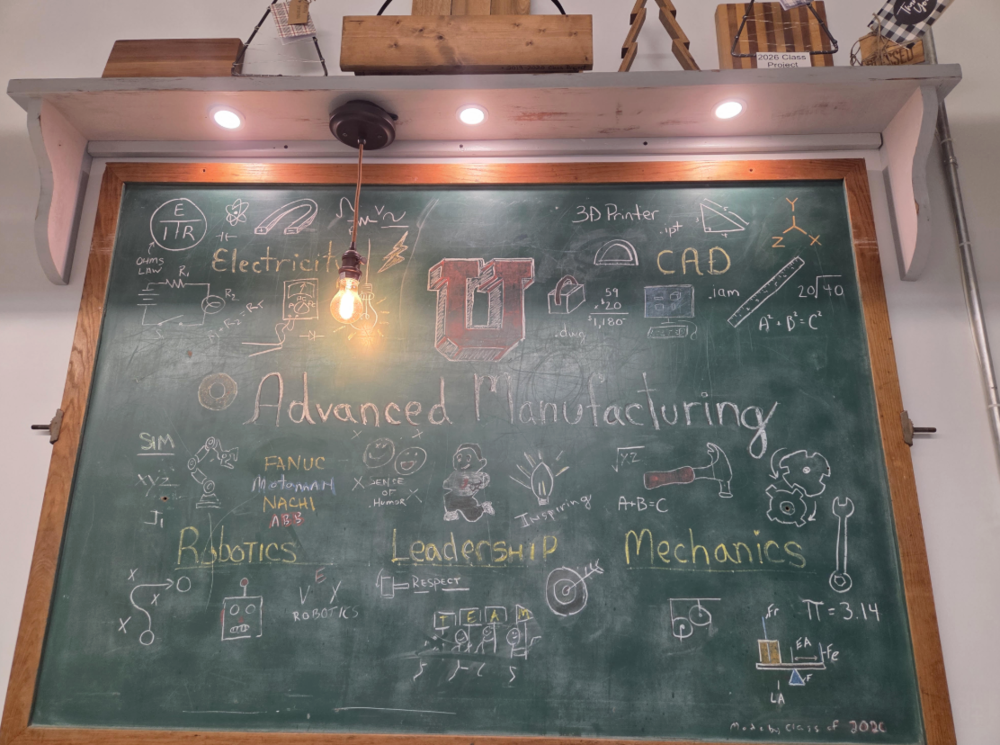 2026 Class
Project
E
I R
OHMS
LAW
R₁
R₂
Electricit
V
U
3D Printer
.ipt
CAD
Y
Z X
59
x 20
1,180
.dwg
.iam
20√40
A² + B² = C²
Advanced Manufacturing
SIM
XYZ
J₁
FANUC
Motoman
NACHI
ABB
SENSE
OF
HUMOR
Inspiring
√YZ
A+B=C
Robotics
Leadership
Mechanics
X
X
X
VEX
ROBOTICS
RESPECT
TEAM
π = 3.14
Fr
EA
Fe
F
LA
Made by Class of 2026